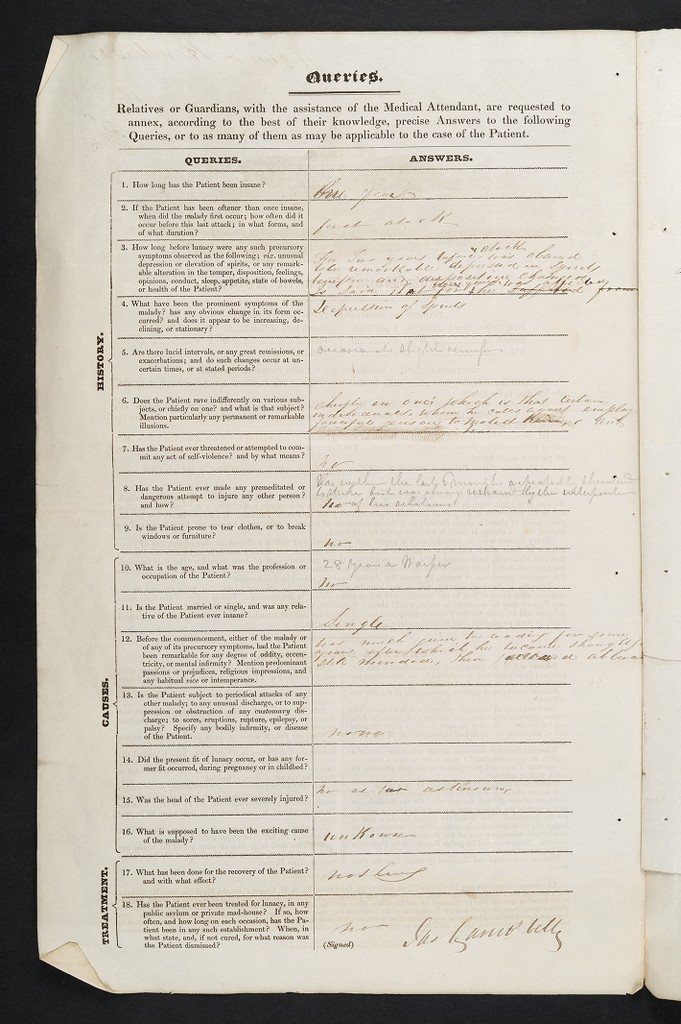 Queries.
Relatives or Guardians, with the assistance of the Medical Attendant, are requested to
annex, according to the best of their knowledge, precise Answers to the following
Queries, or to as many of them as may be applicable to the case of the Patient.
QUERIES.
ANSWERS.
HISTORY.
1. How long has the Patient been insane?
years
2. If the Patient has been oftener than once insane,
when did the malady first occur; how often did it
occur before this last attack; in what forms, and
of what duration?
first atack
3. How long before lunacy were any such precursory
symptoms observed as the following; viz. unusual
depression or elevation of spirits, or any remark-
able alteration in the temper, disposition, feelings,
opinions, conduct, sleep, appetite, state of bowels,
or health of the Patient?
For two years before atack was observed
to be remarkably depressed in spirits
temper and disposition changed
is said that for
4. What have been the prominent symptoms of the
malady? has any obvious change in its form oc-
curred? and does it appear to be increasing, de-
clining, or stationary?
Depression of Spirits
5. Are there lucid intervals, or any great remissions, or
exacerbations; and do such changes occur at un-
certain times, or at stated periods?
occasional slight remission
6. Does the Patient rave indifferently on various sub-
jects, or chiefly on one? and what is that subject?
Mention particularly any permanent or remarkable
illusions.
chiefly on one; which is that certain
individuals whom he calls agents employ
powerful persons to molest
7. Has the Patient ever threatened or attempted to com-
mit any act of self-violence? and by what means?
no
8. Has the Patient ever made any premeditated or
dangerous attempt to injure any other person?
and how?
Has within the last 6 months repeatedly threatened
to strike but was always restrained by the interposition
of his relations
no
9. Is the Patient prone to tear clothes, or to break
windows or furniture?
no
CAUSES.
10. What is the age, and what was the profession or
occupation of the Patient?
28 years a Warper
no
11. Is the Patient married or single, and was any re-
lative of the Patient ever insane?
Single
12. Before the commencement, either of the malady or
of any of its precursory symptoms, had the Patient
been remarkable for any degree of oddity, eccen-
tricity, or mental infirmity? Mention predominant
passions or prejudices, religious impressions, and
any habitual vice or intemperance.
was much given to reading for some
years after which he became thoughtful
then
13. Is the Patient subject to periodical attacks of any
other malady; to any unusual discharge, or to sup-
pression or obstruction of any customary dis-
charge; to sores, eruptions, rupture, epilepsy, or
palsy? Specify any bodily infirmity, or disease
of the Patient.
none
14. Did the present fit of lunacy occur, or has any for-
mer fit occurred, during pregnancy or in childbed?
15. Was the head of the Patient ever severely injured?
no as far as known
16. What is supposed to have been the exciting cause
of the malady?
unknown
TREATMENT.
17. What has been done for the recovery of the Patient?
and with what effect?
nothing
18. Has the Patient ever been treated for lunacy, in any
public asylum or private mad-house? If so, how
often, and how long on each occasion, has the Pa-
tient been in any such establishment? When, in
what state, and, if not cured, for what reason was
the Patient dismissed?
no
(Signed) Jas Campbell